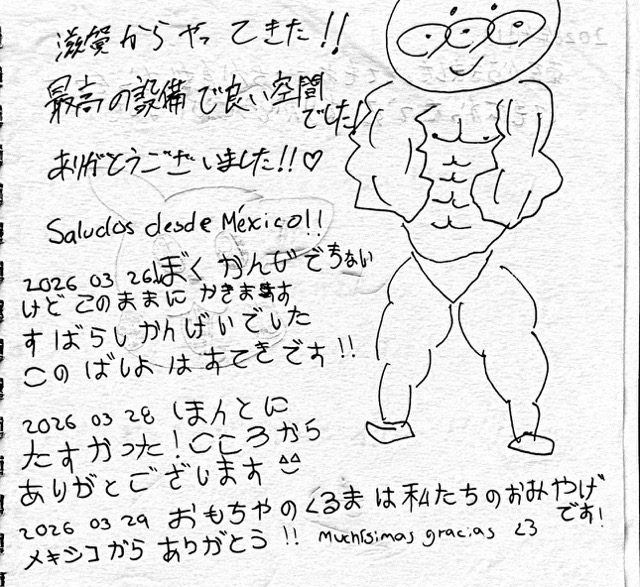 滋賀からやってきた!!
最高の設備で良い空間
でした!
ありがとうございました!!♡
Saludos desde México!!
2026 03 26 ぼく かんぜ でもない
けど このままに かきます
すばらし かんぱいでした
このばしよ はすてきです!!
2026 03 28 ほんとに
たすかった!こころから
ありがとございます ^^
2026 03 29 おもちゃのくるまは私たちのおみやげ
です!
メキシコから ありがとう!! Muchísimas gracias <3